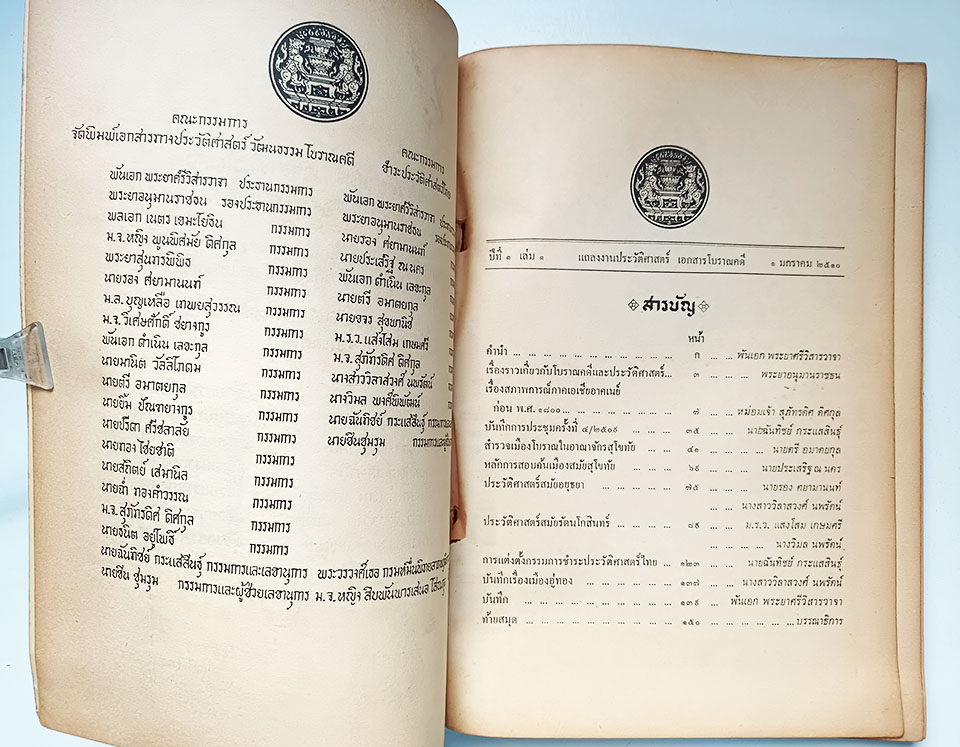 คณะกรรมการ
จัดพิมพ์เอกสารทางประวัติศาสตร์ วัฒนธรรม โบราณคดี
พันเอก พระยาศรีวิสารวาจา ประธานกรรมการ
พระยาอนุมานราชธน รองประธานกรรมการ
พลเอก เนตร เขมะโยธิน กรรมการ
ม.จ.หญิง พูนพิศมัย ดิศกุล กรรมการ
พระยาสุนทรพิพิธ กรรมการ
นายรอง ศยามานนท์ กรรมการ
ม.ล. บุญเหลือ เทพยสุวรรณ กรรมการ
ม.จ. วิเศษศักดิ์ ชยางกูร กรรมการ
พันเอก ดำเนิน เลขะกุล กรรมการ
นายมานิต วัลลิโภดม กรรมการ
นายตรี อมาตยกุล กรรมการ
นายยิ้ม ปัณฑยางกูร กรรมการ
นายปรีดา ศรีชลาลัย กรรมการ
นายทอง ไชยชาติ กรรมการ
นายสถิตย์ เสมานิล กรรมการ
นายฉ่ำ ทองคำวรรณ กรรมการ
ม.จ. สุภัทรดิศ ดิศกุล กรรมการ
นายธนิต อยู่โพธิ์ กรรมการ
นายฉันทิชย์ กระแสสินธุ์ กรรมการและเลขานุการ
นายชื่น ชุมรุม กรรมการและผู้ช่วยเลขานุการ
คณะกรรมการ
ชำระประวัติศาสตร์ไทย
พันเอก พระยาศรีวิสารวาจา
พระยาอนุมานราชธน
นายรอง ศยามานนท์
นายประเสริฐ ณ นคร
พันเอก ดำเนิน เลขะกุล
นายตรี อมาตยกุล
นายขจร สุขพานิช
ม.ร.ว. แสงโสม เกษมศรี
ม.จ. สุภัทรดิศ ดิศกุล
นางสาววิลาสวงศ์ นพรัตน์
นางวิมล พงศ์พิพัฒน์
นายฉันทิชย์ กระแสสินธุ์
นายชื่นชุมรุม
พระวรวงศ์เธอ กรมหมื่นพิทยลาภ
ม.จ. หญิง สืบพันพารเสนอ โสณกุล
ปีที่ ๑ เล่ม ๑ แถลงงานประวัติศาสตร์ เอกสารโบราณคดี ๑ มกราคม ๒๕๑๐
สารบัญ
หน้า
คำนำ ... ก ... พันเอก พระยาศรีวิสารวาจา
เรื่องราวเกี่ยวกับโบราณคดีและประวัติศาสตร์... ๓ ... พระยาอนุมานราชธน
เรื่องสภาพการณ์ภาคเอเชียอาคเนย์
ก่อน พ.ศ. ๑๘๐๐... ๗ ... หม่อมเจ้า สุภัทรดิศ ดิศกุล
บันทึกการประชุมครั้งที่ ๔/๒๕๐๙ ... ๓๕ ... นายฉันทิชย์ กระแสสินธุ์
สำรวจเมืองโบราณในอาณาจักรสุโขทัย ... ๔๑ ... นายตรี อมาตยกุล
หลักการสอบค้นเมืองสมัยสุโขทัย ... ๖๖ ... นายประเสริฐ ณ นคร
ประวัติศาสตร์สมัยอยุธยา ... ๗๕ ... นายรอง ศยามานนท์
... นางสาววิลาสวงศ์ นพรัตน์
ประวัติศาสตร์สมัยรัตนโกสินทร์ ... ๘๙ ... ม.ร.ว. แสงโสม เกษมศรี
... นางวิมล นพรัตน์
การแต่งตั้งกรรมการชำระประวัติศาสตร์ไทย ... ๑๒๓ ... นายฉันทิชย์ กระแสสินธุ์
บันทึกเรื่องเมืองอู่ทอง ... ๑๓๗ ... นางสาววิลาสวงศ์ นพรัตน์
บันทึก ... ๑๓๙ ... พันเอก พระยาศรีวิสารวาจา
ท้ายสมุด ... ๑๕๐ ... บรรณาธิการ